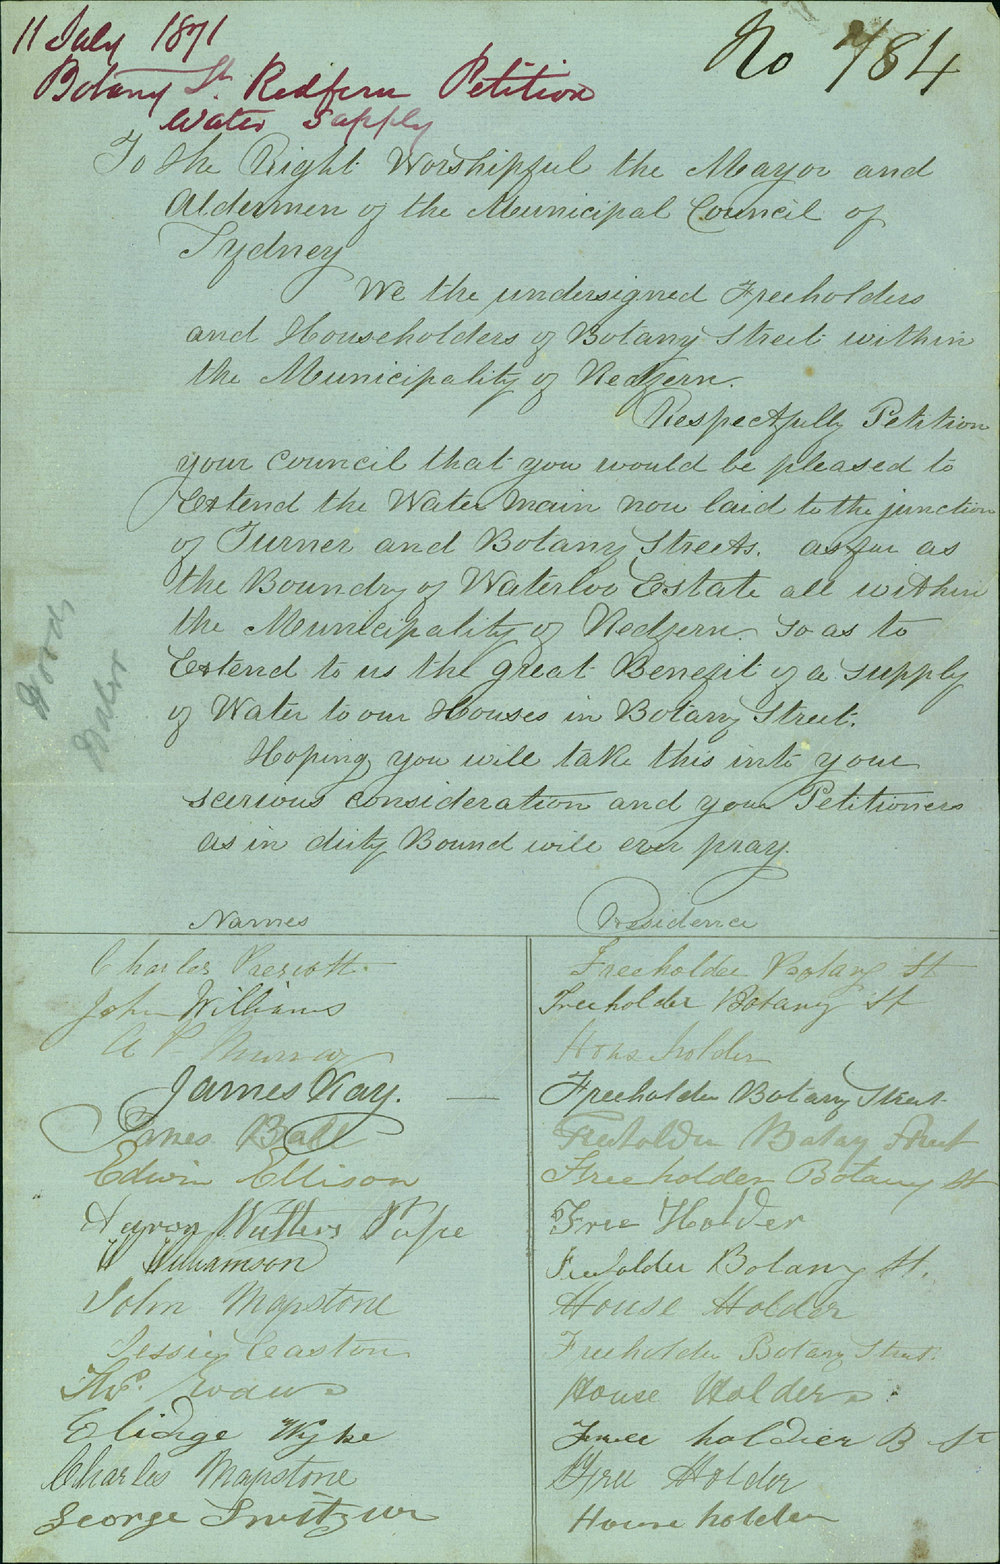 11 July 1871
No 784
Botany St. Redfern Petition
Water Supply
To the Right Worshipful the Mayor and
Aldermen of the Municipal Council of
Sydney
We the undersigned Freeholders
and Householders of Botany Street within
the Municipality of Redfern.
Respectfully Petition
your Council that you would be pleased to
Extend the Water main now laid to the junction
of Turner and Botany Streets. as far as
the Boundry of Waterloo Estate all within
the Municipality of Redfern. So as to
Extend to us the great Benefit of a supply
of Water to our Houses in Botany Street.
Hoping you will take this into your
scerious consideration and your Petitioners
as in duty Bound will ever pray.
Woods
Names Residence
Charles Prescott Freeholder Botany St
John Williams Freeholder Botany St
A P Murray House holder
James Kay. — Freeholder Botany Street
James Ball Freeholder Botany Street
Edwin Ellison Freeholder Botany St
Aaron Walters Pape Free Holder
W Williamson Freeholder Botany St.
John Mapstone House Holder
Jessie Easton Freeholder Botany Street.
Thos. Evans House Holder
Elidge Wyke Free holdier B St
Charles Mapstone Free Holder
George House holder